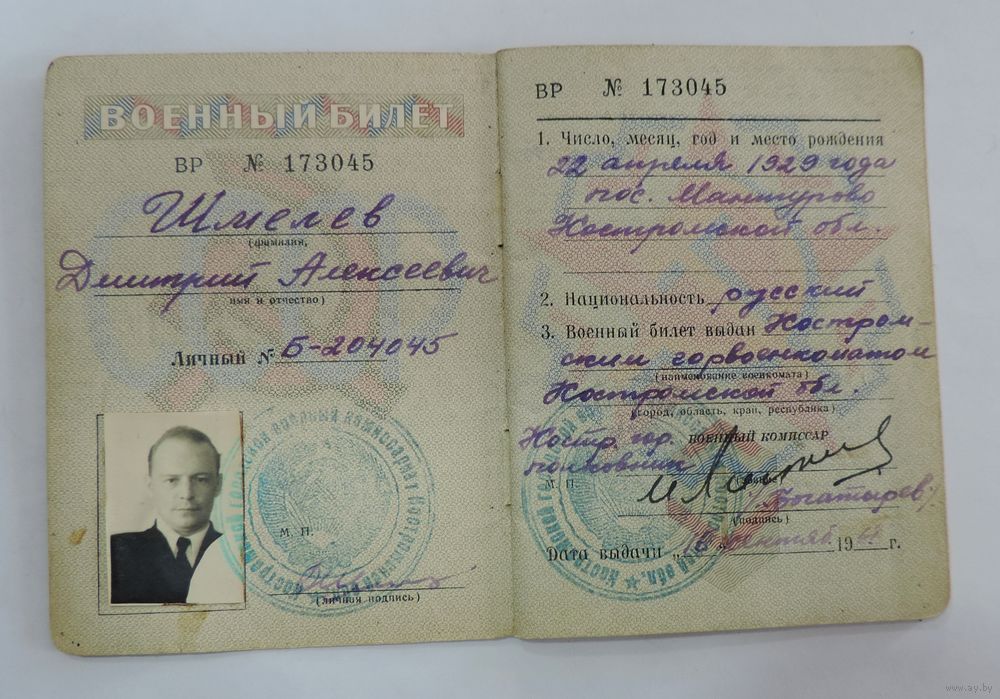 ВОЕННЫЙ БИЛЕТ
ВР № 173045
Шмелев
(фамилия,
Дмитрий Алексеевич
имя и отчество)
Личный № Б-204045
М. П.
(личная подпись)
ВР № 173045
1. Число, месяц, год и место рождения
22 апреля 1929 года
пос. Мантурово
Костромской обл.
2. Национальность русский
3. Военный билет выдан Костром-
ским горвоенкоматом
(наименование военкомата)
Костромской обл.
(город, область, край, республика)
Костр. гор. ВОЕННЫЙ КОМИССАР
полковник
М. П.
/Богатырев/
(подпись)
Дата выдачи „16" сентяб. 19 г.
www.ay.by